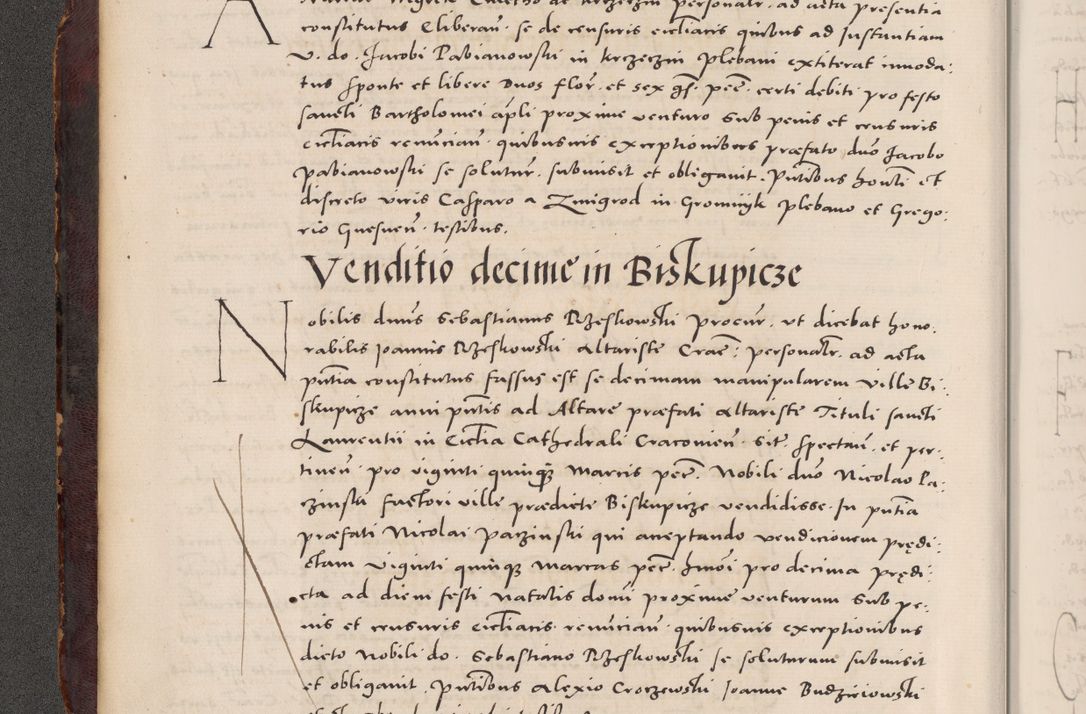 constitutus Cliberaň · se de censuris eccliacis quibus ad Instantiam
v. do. Jacobi Pabianowski in Krzeczin plebani extiterat innoda:
tus sponte et libere Duos flor. et sex gs. pec. certi debiti pro festo
sancti Bartholomei apli proxime venturo sub penis et censuris
eccliacis renuncian. quibusuis exceptionibus præfato duo Jacobo
pabianowski se solutur. submisit et obligauit. Pntibus honti et
discreto viris Casparo a Zmigrod in Gromnyk plebano et Grego:
rio Gnesnen. testibus.
Venditio decime in Biskupicze
Nobilis dnus Sebastianus Rzeskowski Procur. vt dicebat hono:
rabilis Joannis Rzeskowski Altariste Crac: personalr. ad acta
pntia constitutus fassus est se decimam manipularem ville Bi:
skupicze anni pntis ad Altare præfati Altariste Tituli sancti
Laurentii in Ecclia Cathedrali Cracouien. sit. spectan. et per:
tinen. pro viginti quinque Marcis pec. Nobili duo Nicolao Pa:
czinski factori ville prædicte Biskupicze vendidisse. In pntia
præfati Nicolai Paczinski qui acceptando vendicionem prędi:
ctam viginti quinque Marcas pec. hmoi pro decima prędi:
cta ad diem festi Natalis domi proxime venturum sub pe:
nis et censuris eccliacis renuncian. quibusuis exceptionibus
dicto Nobili do. Sebastiano Rzeskowski se soluturum submisit
et obligauit. Pntibus Alexio Croczewski Joanne Budzieiowski